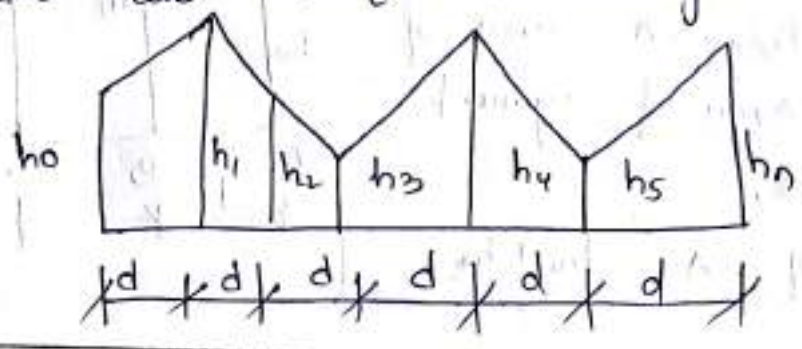 h0 h1 h2 h3 h4 h5 hn
d d d d d d